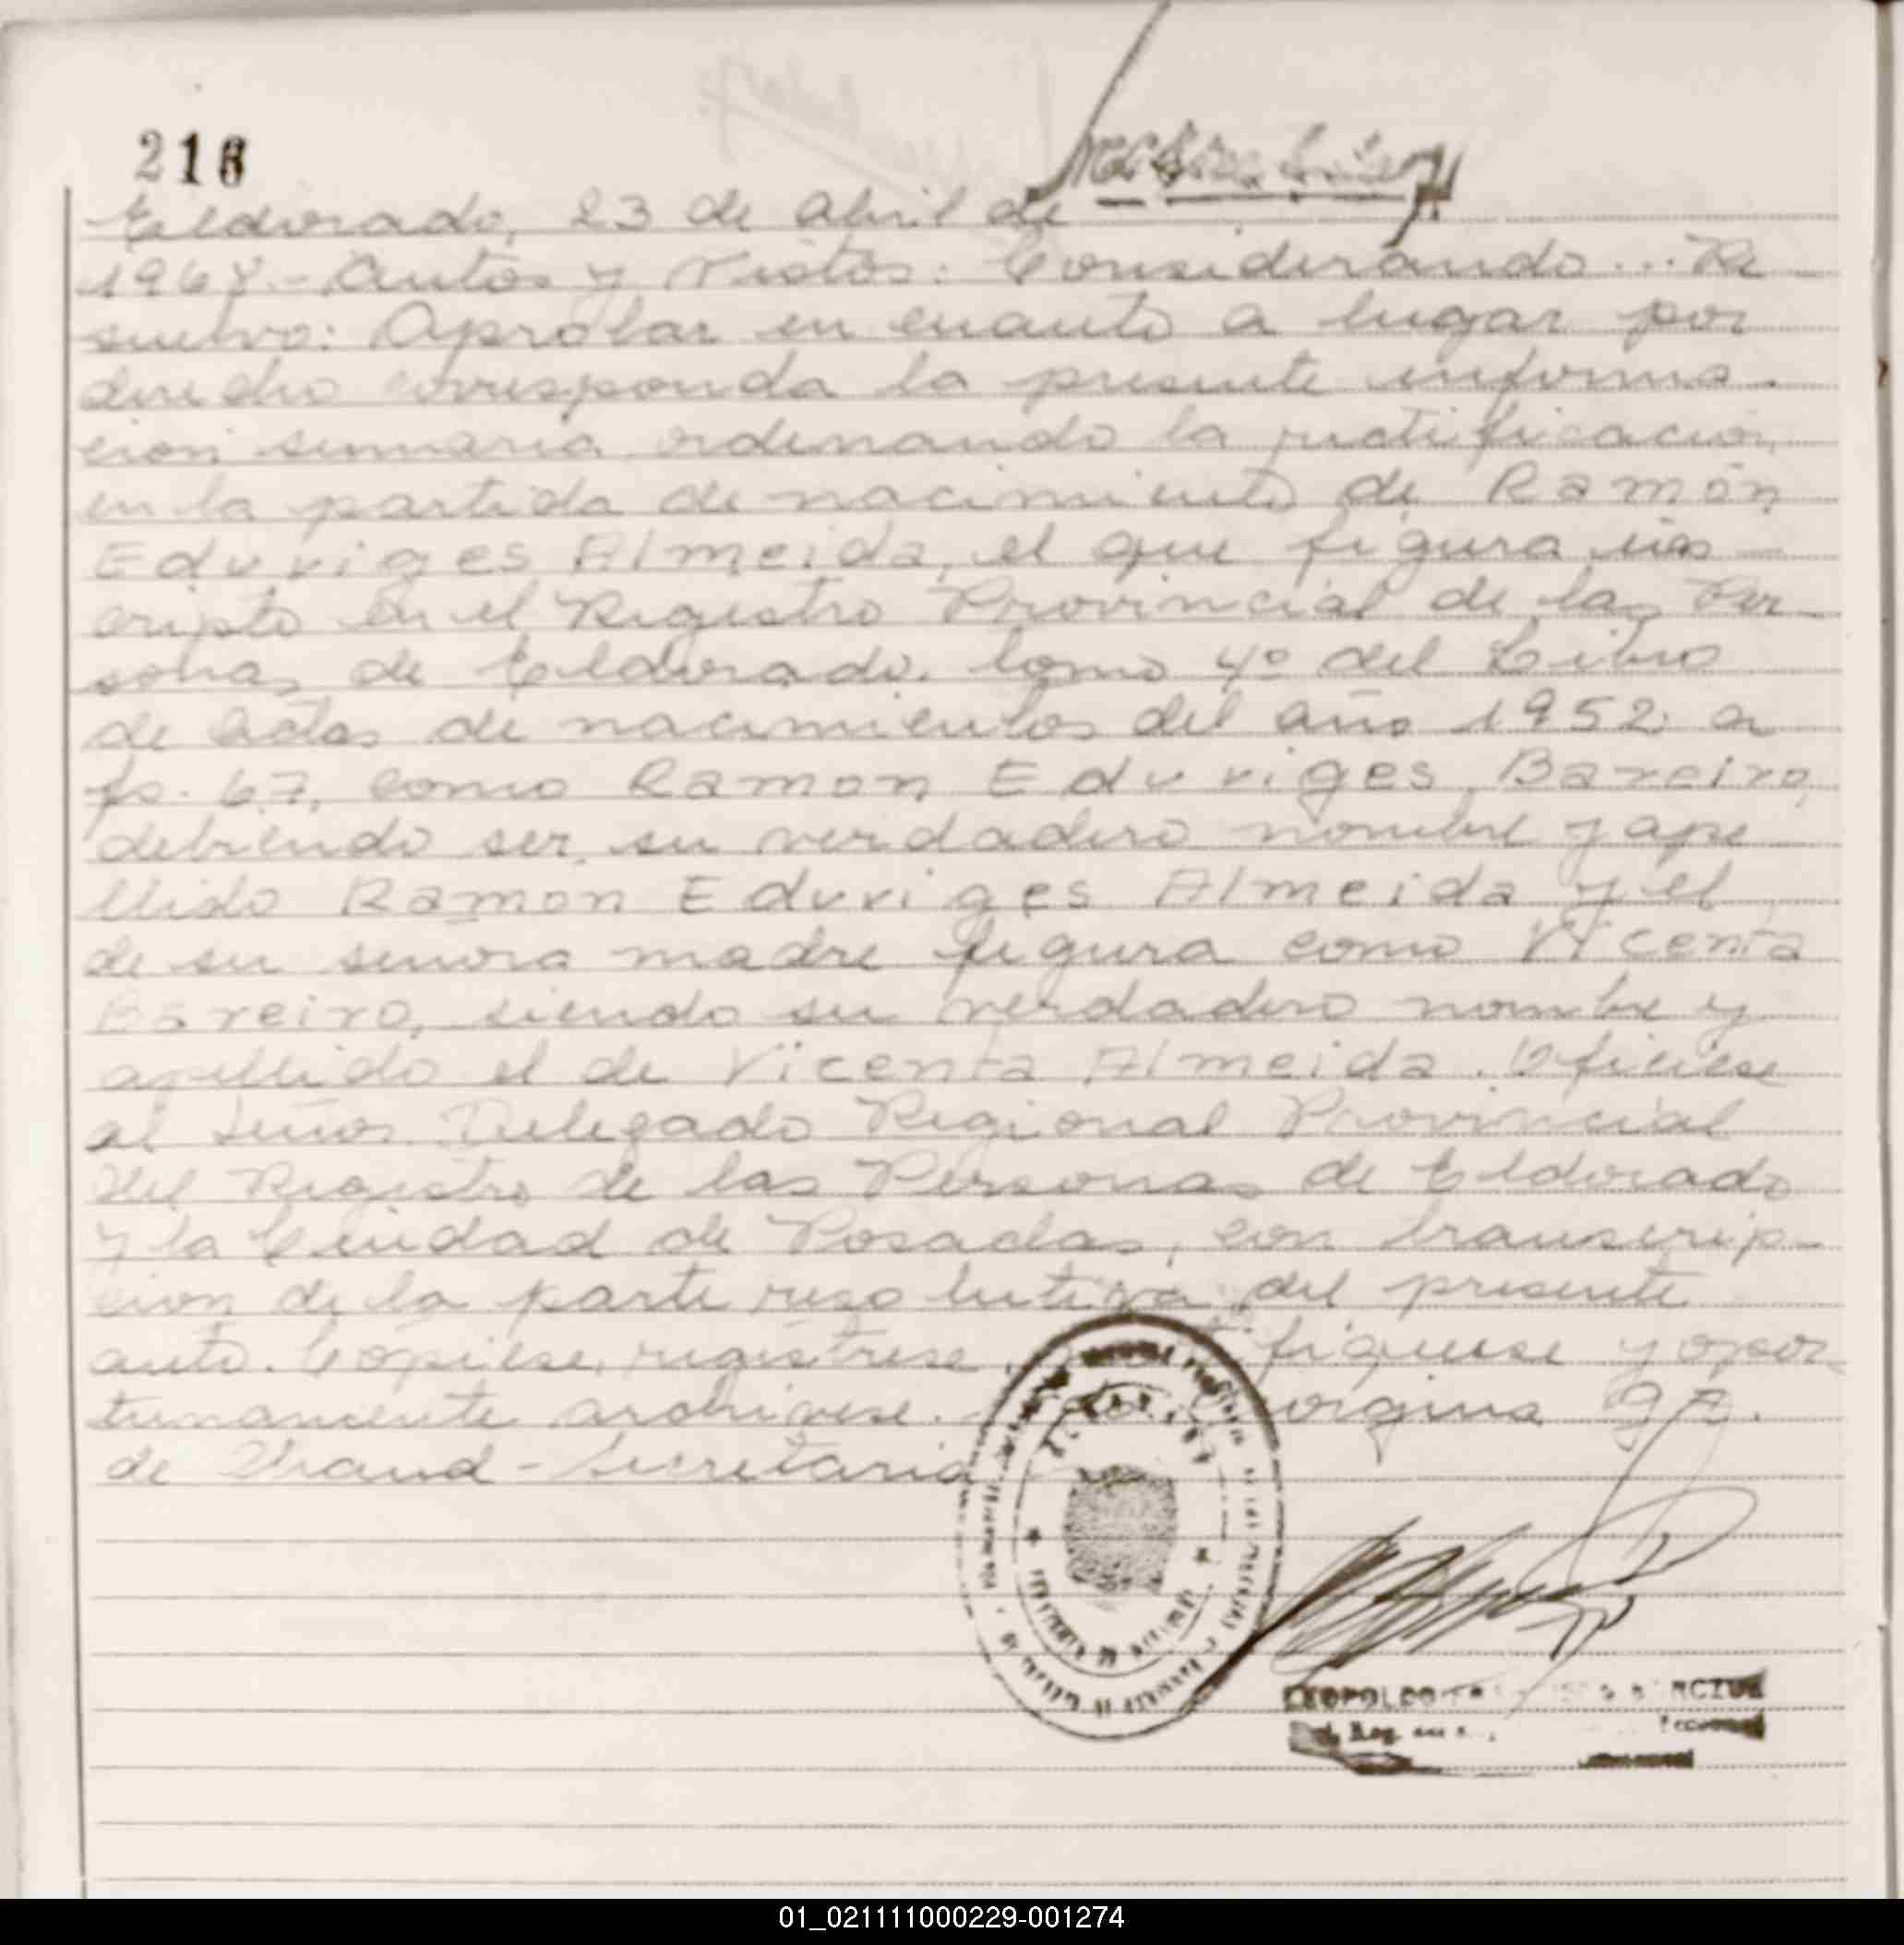 216
Eldorado, 23 de Abril de
1968.- Autos y Vistos: Considerando... Re
suelvo: Aprobar en cuanto a lugar por
derecho corresponda la presente informa-
ción sumaria ordenando la rectificación
en la partida de nacimiento de Ramón
Eduviges Almeida, el que figura ins
cripto en el Registro Provincial de las Per-
sonas de Eldorado. Tomo 4º del Libro
de actas de nacimientos del año 1952 a
fs. 67, como Ramon Eduviges Bareiro,
debiendo ser su verdadero nombre y ape
llido Ramon Eduviges Almeida y el
de su señora madre figura como Vicenta
Bareiro, siendo su verdadero nombre y
apellido el de Vicenta Almeida. Ofíciese
al Señor Delegado Regional Provincial
del Registro de las Personas de Eldorado
y la Ciudad de Posadas, con transcrip-
cion de la parte resolutiva del presente
auto. Cópiese, regístrese fíquese y opor-
tunamente archívese.
de - Secretaria
LEOPOLDO
Reg.
01_021111000229-001274